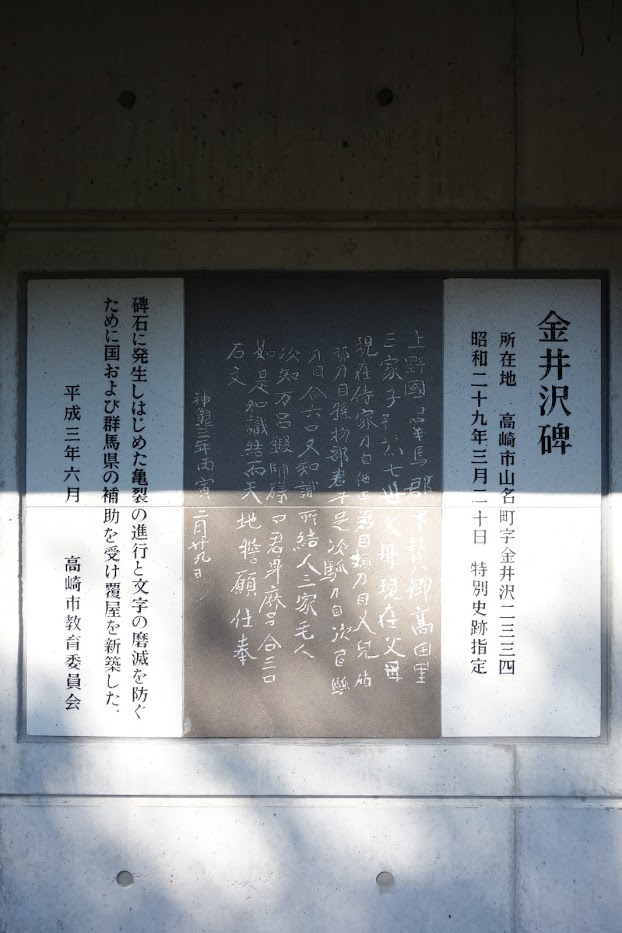 金井沢碑
所在地 高崎市山名町字金井沢二三三四
昭和二十九年三月二十日 特別史跡指定
上野國羣馬郡下賛郷高田里
三家子孫七世父母現在父母
現在侍家刀自他田君目頬刀自又兒加
那刀自孫物部君午足次馴刀自次乙馴
刀自合六口又知識所結人三家毛人
次知万呂鍛師礒マ君身麻呂合三口
如是知識結而天地誓願仕奉
石文
神龜三年丙寅二月廿九日
碑石に発生しはじめた亀裂の進行と文字の磨滅を防ぐ
ために国および群馬県の補助を受け覆屋を新築した。
平成三年六月 高崎市教育委員会